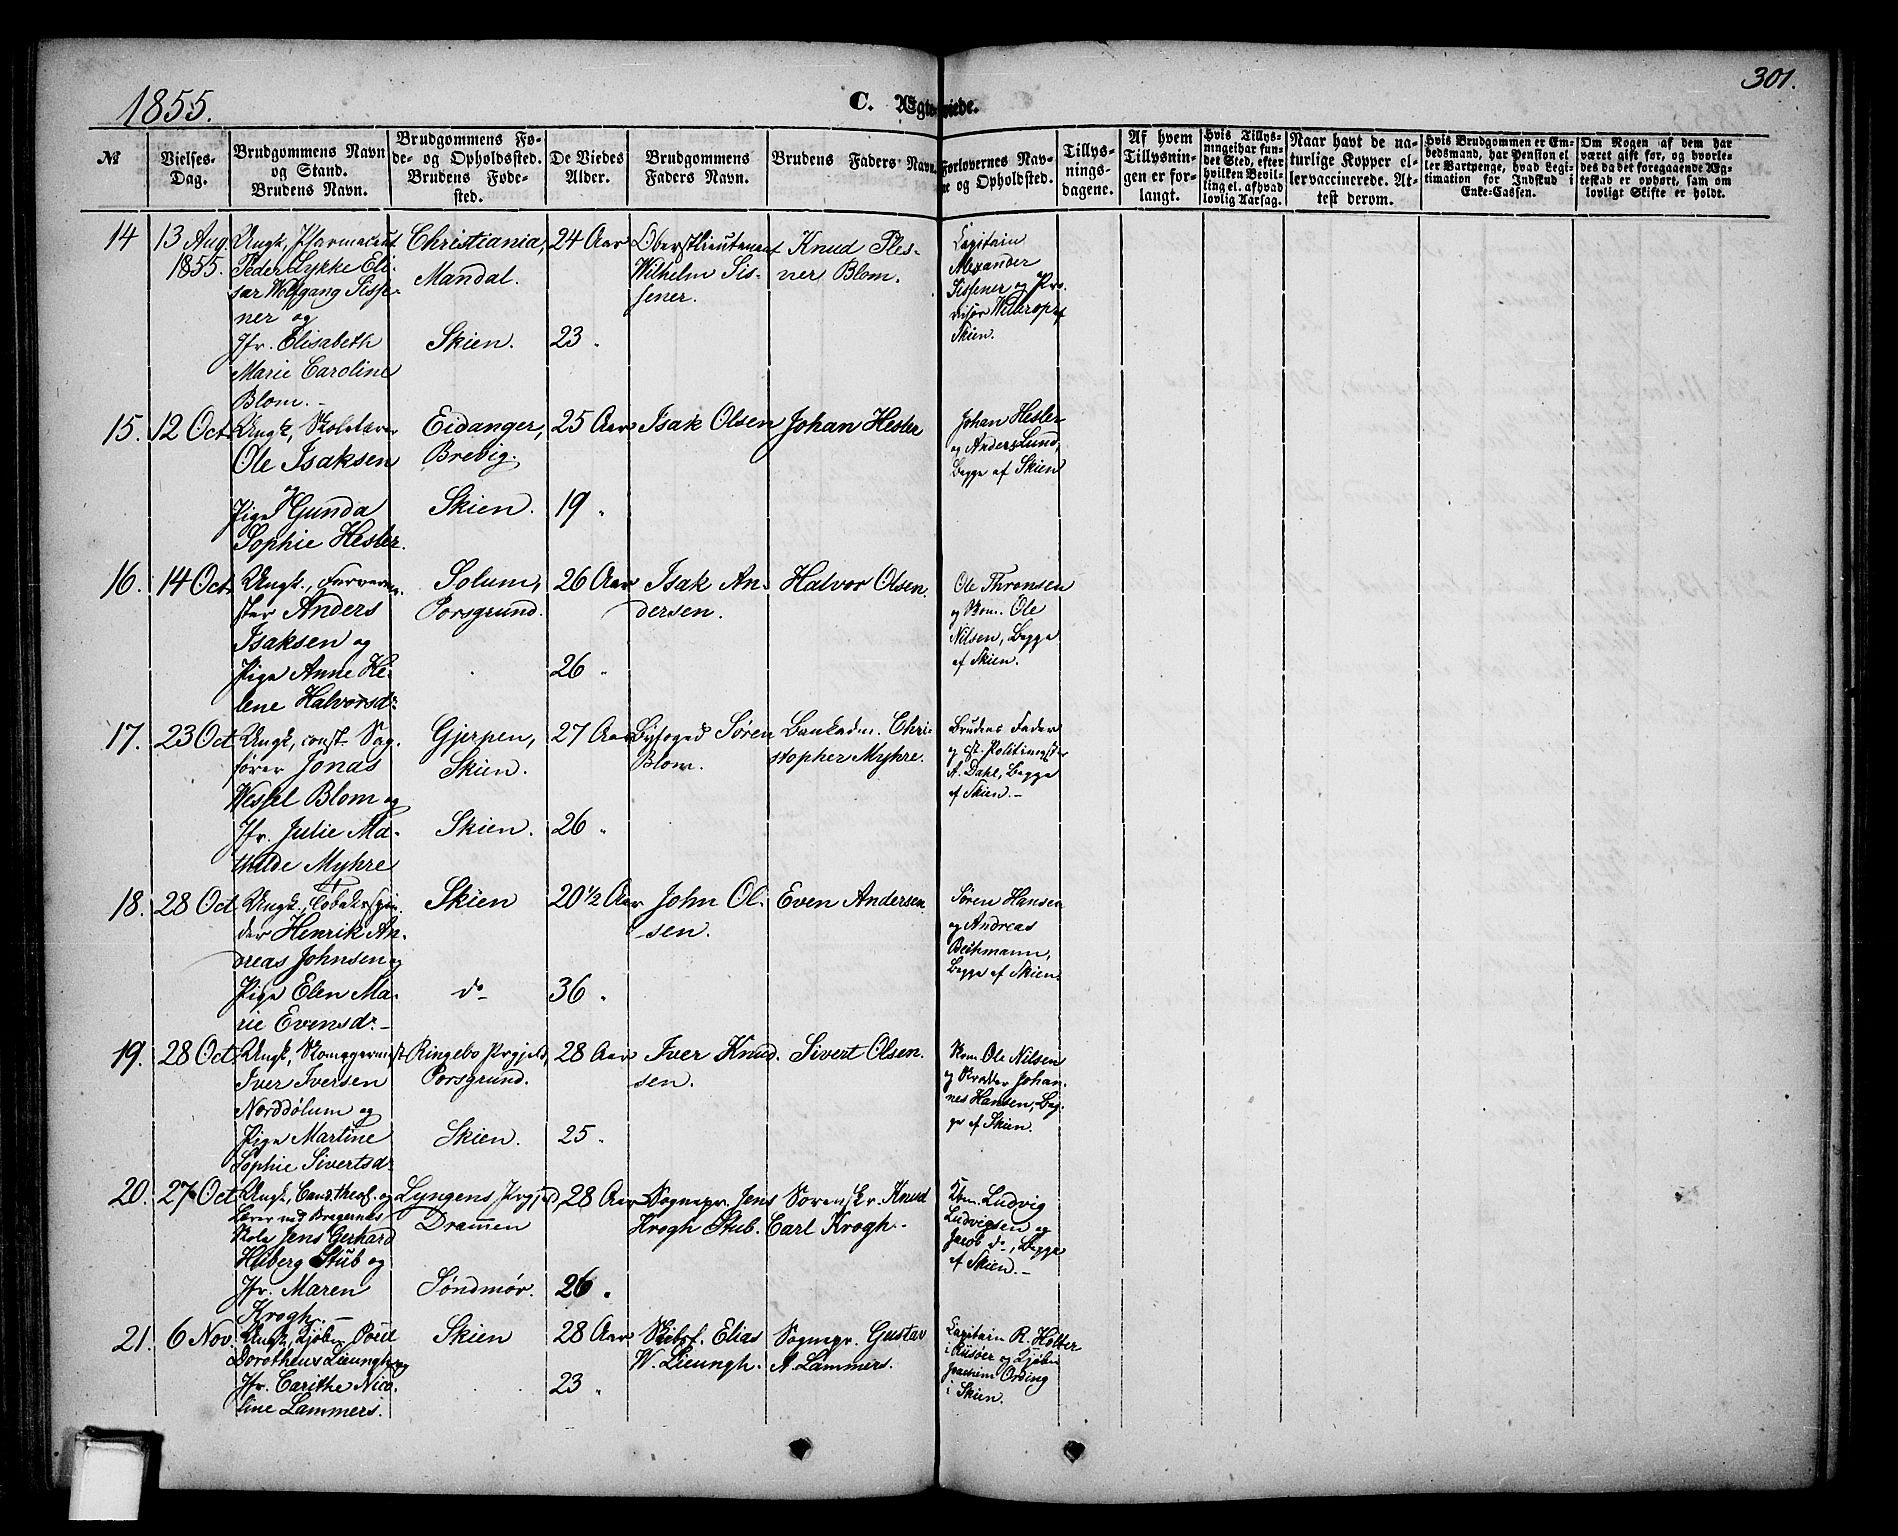 1855.
C. Ægteviede.
301.
№
Vielses-
Dag.
Brudgommens Navn
og Stand.
Brudens Navn.
Brudgommens Fø-
de- og Opholdssted.
Brudens Føde-
sted.
De Viedes
Alder.
Brudgommens
Faders Navn.
Brudens Faders Navn.
Forlovernes Nav-
ne og Opholdssted.
Tillys-
nings-
dagene.
Af hvem
Tillysnin-
gen er for-
langt.
Hvis Tillys-
ning ei har fun-
det Sted, efter
hvilken Bevil-
ling el. af hvad
lovlig Aarsag.
Naar havt de na-
turlige Kopper el-
ler vaccinerede. At-
test derom.
Hvis Brudgommen er Em-
bedsmand, har Pension el-
ler Vartpenge, hvad Legi-
timation for Indskud i
Enke-Cassen.
Om Nogen af dem har
været gift før, og hvorle-
des da det foregaaende Æg-
teskab er ophørt, samt om
lovligt Skifte er holdt.
14
13 Aug.
1855.
Ungk., Pharmaceut
Peder Lykke Eli-
sar Wolfgang Sisse-
ner og
Jfr. Elisabeth
Marie Caroline
Blom.
Christiania,
Mandal.
Skien.
24 Aar
23 "
Oberstlieutenant
Wilhelm Sis-
sener.
Knud Ples-
ner Blom.
Capitain
Alexander
Sissener og Pro-
visor
Skien.
15.
12 Oct.
Ungk., Skolelærer
Ole Isaksen
og
Pige Gunda
Sophie Hesler.
Eidanger,
Brevig.
Skien.
25 Aar
19 "
Isak Olsen
Johan Hesler
Johan Hesler
og Anders Lund,
Begge af Skien
16.
14 Oct.
Ungk., Farverme-
ster Anders
Isaksen og
Pige Anne He-
lene Halvorsdr.
Solum,
Porsgrund.
26 Aar
26 "
Isak An-
dersen.
Halvor Olsen.
Ole Thronsen
og Skom. Ole
Nilsen, Begge
af Skien.
17.
23 Oct.
Ungk., const. Sag-
fører Jonas
Wessel Blom og
Jfr. Julie Ma-
thilde Myhre
Gjerpen,
Skien.
Skien.
27 Aar
26 "
Byfoged Søren
Blom.
Bankadm. Chri-
stopher Myhre.
Brudens Fader
og cst. Politimester
A. Dahl, Begge
af Skien.
18.
28 Oct.
Ungk., Tobakspin-
der Henrik An-
dreas Johnsen og
Pige Elen Ma-
rie Evensdr.
Skien
do
20 1/2 Aar
36 "
John Ol-
sen.
Even Andersen.
Søren Hansen
og Andreas
Beckmann,
Begge af Skien.
19.
28 Oct.
Ungk., Skomagermest.
Iver Iversen
Norddølum og
Pige Martine
Sophie Sivertsdr.
Ringebo Prgjeld,
Porsgrund.
Skien.
28 Aar
25 "
Iver Knud-
sen.
Sivert Olsen.
Skom. Ole Nilsen
og Johan-
nes Hansen, Beg-
ge af Skien.
20.
27 Oct.
Ungk., Cand. theol. og
Lærer ved Bragernes
Skole Jens Gerhard
Heiberg Stub og
Jfr. Maren
Krogh.
Lyngens Prgjeld,
Drammen
Søndmør.
28 Aar
26 "
Sognepr. Jens
Krogh Stub.
Sorenskr. Knud
Carl Krogh.
Kbm. Ludvig
Ludvigsen og
Jacob do, Begge
af Skien.
21.
6 Nov.
Ungk., Kjøbm. Poul
Dorotheus Lieungh og
Jfr. Carithe Nico-
line Lammers.
Skien
28 Aar
23 "
Skibsf. Elias
W. Lieungh.
Sognepr. Gustav
A. Lammers.
Capitain R. Holter
i Risøer og Kjøbm.
Joachim Ording
i Skien.